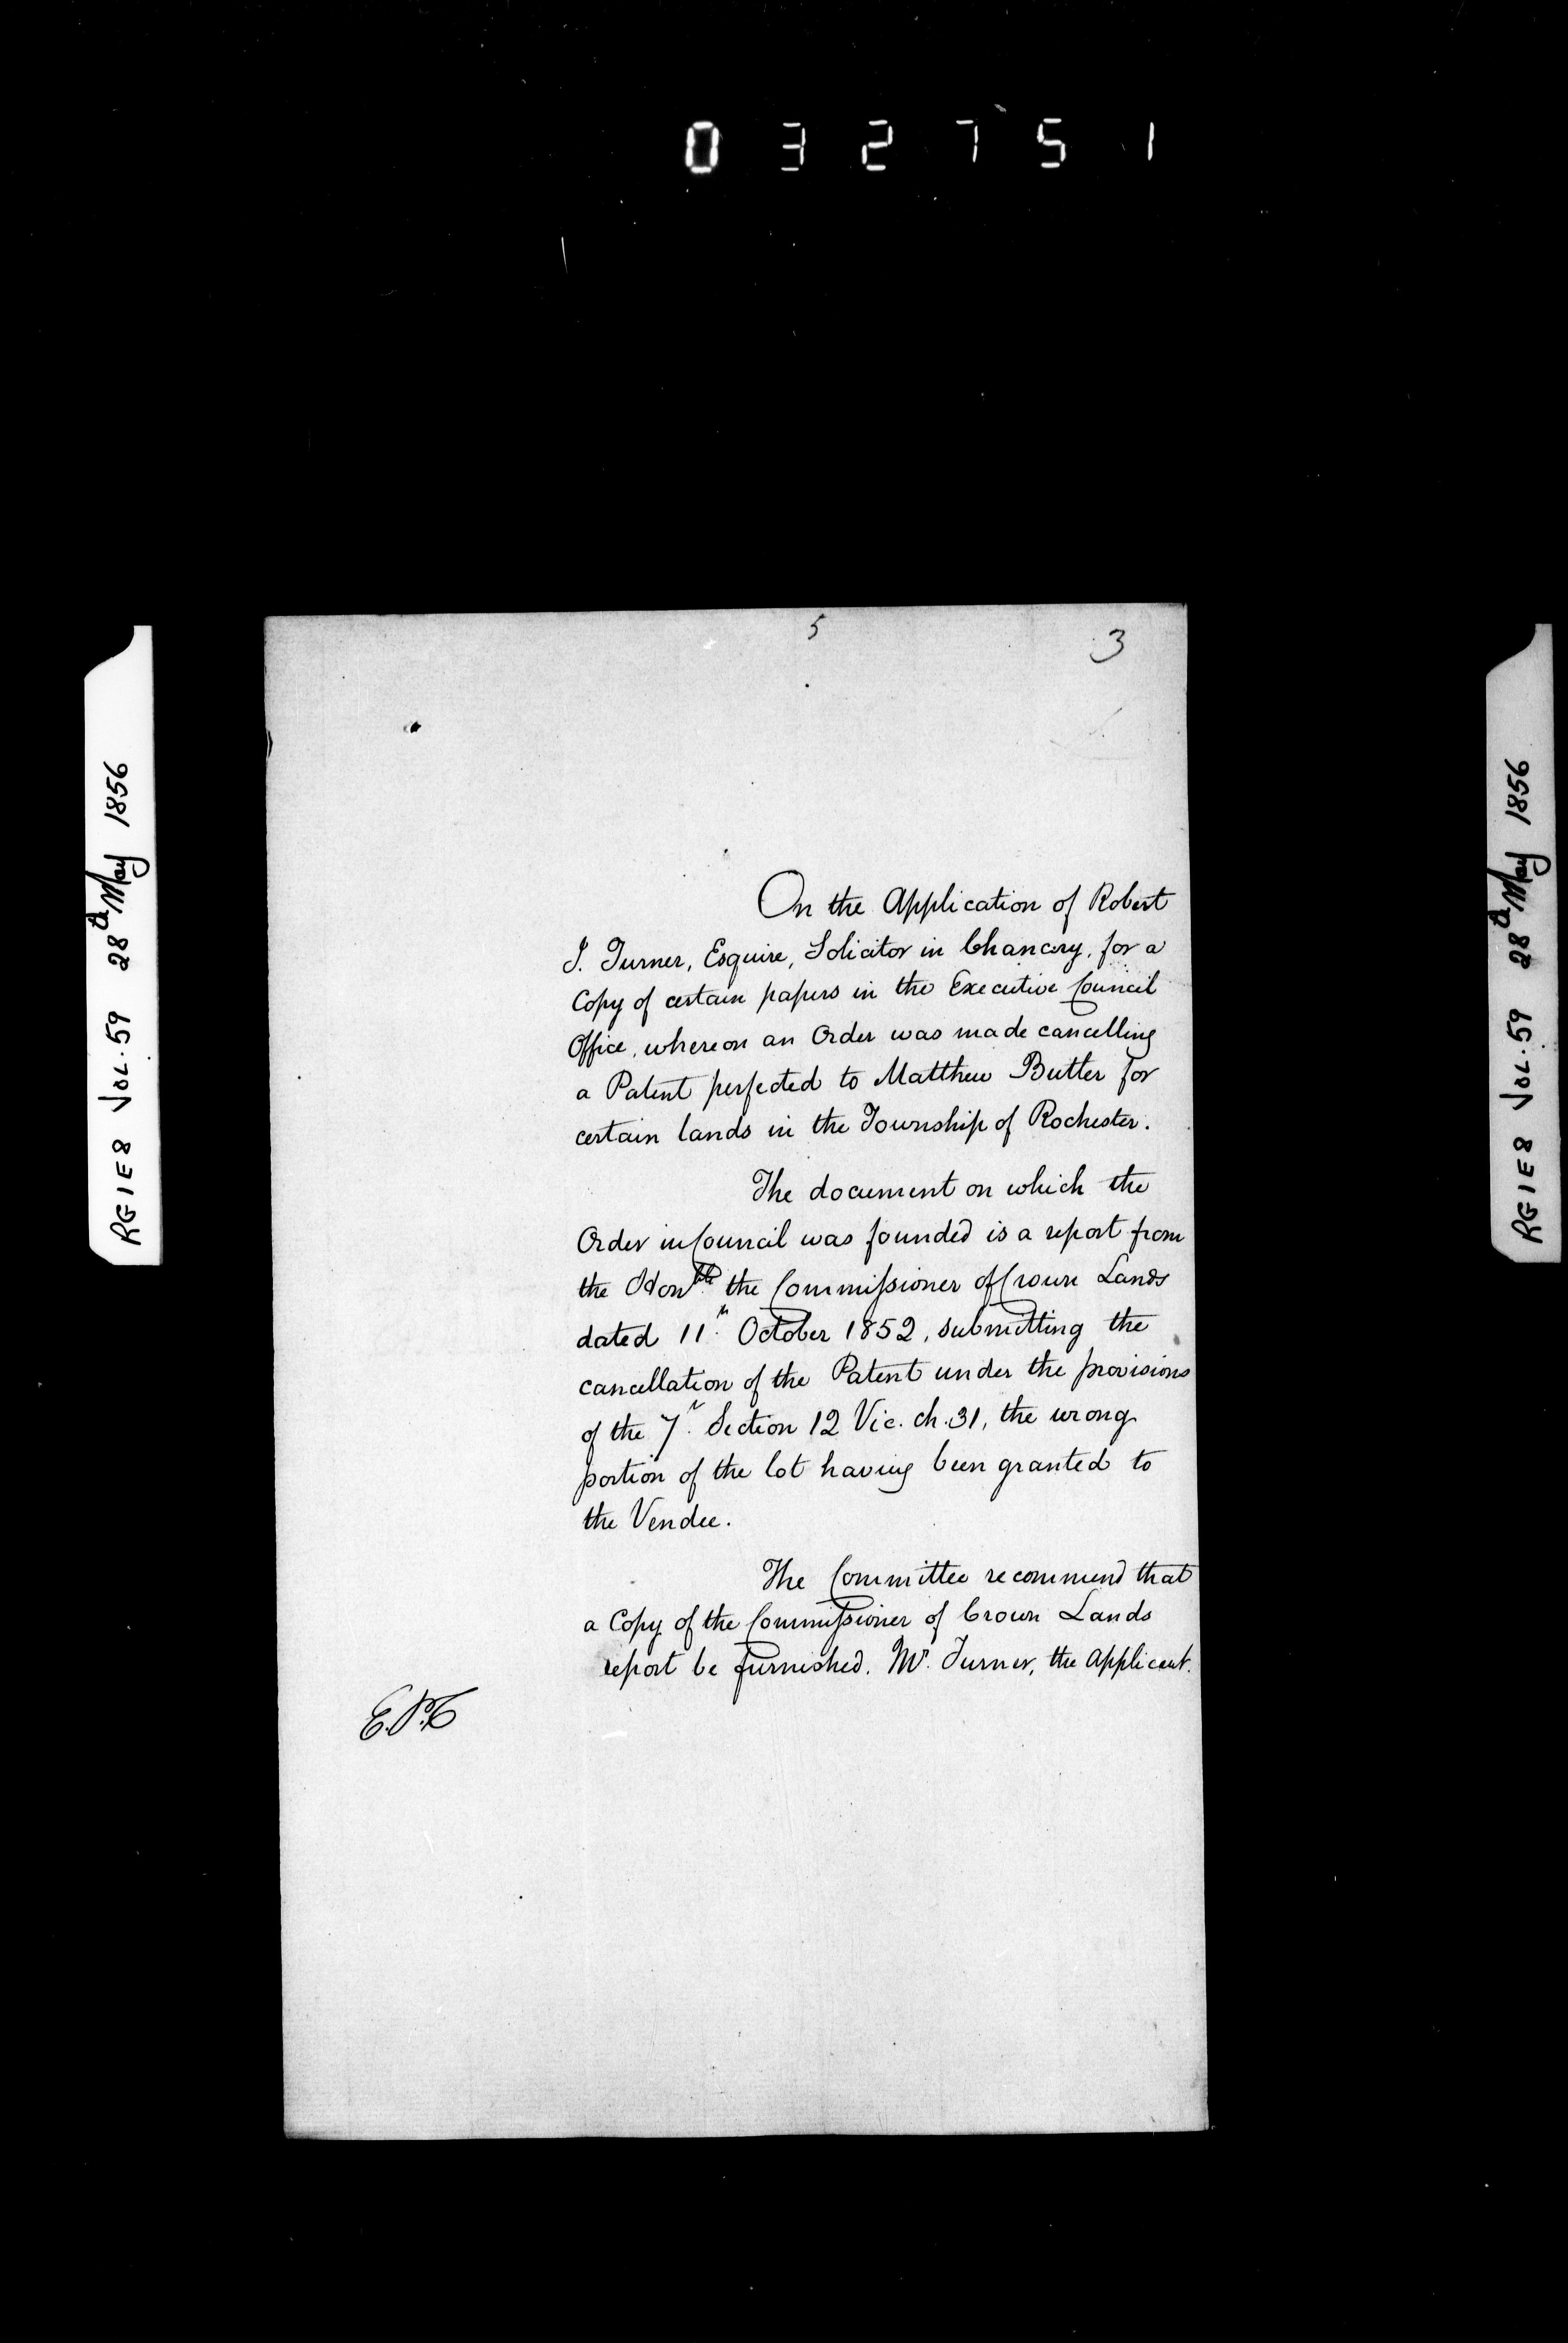 0 3 2 7 5 1
RG1E8 VOL.59 28th May 1856
5
3
On the Application of Robert
J. Turner, Esquire, Solicitor in Chancery, for a
Copy of certain papers in the Executive Council
Office, whereon an Order was made cancelling
a Patent perfected to Matthew Butler for
certain lands in the Township of Rochester.
The document on which the
Order in Council was founded is a report from
the Honble the Commissioner of Crown Lands
dated 11th October 1852, submitting the
cancellation of the Patent under the provisions
of the 7th Section 12 Vic. ch. 31, the wrong
portion of the lot having been granted to
the Vendee.
The Committee recommend that
a Copy of the Commissioner of Crown Lands
report be furnished. Mr. Turner, the Applicant.
RG1E8 VOL.59 28th May 1856